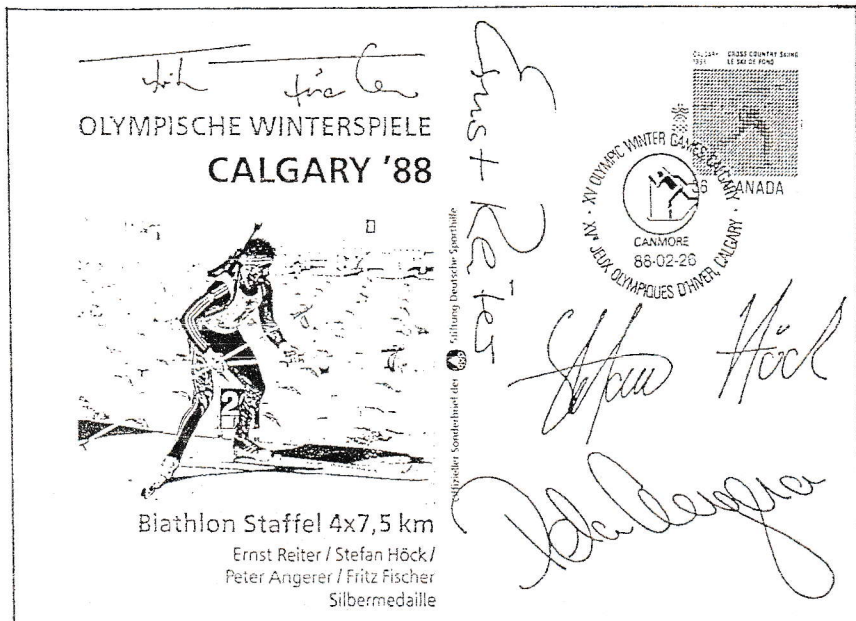 Fritz Fischer
OLYMPISCHE WINTERSPIELE
CALGARY '88
2
Biathlon Staffel 4x7,5 km
Ernst Reiter / Stefan Höck /
Peter Angerer / Fritz Fischer
Silbermedaille
Offizieller Sonderbrief der Stiftung Deutsche Sporthilfe
Ernst Reiter
CALGARY CROSS COUNTRY SKIING
1988 LE SKI DE FOND
36 CANADA
XV OLYMPIC WINTER GAMES, CALGARY
CANMORE
88-02-26
XVes JEUX OLYMPIQUES D'HIVER, CALGARY
Stefan Höck
Peter Angerer